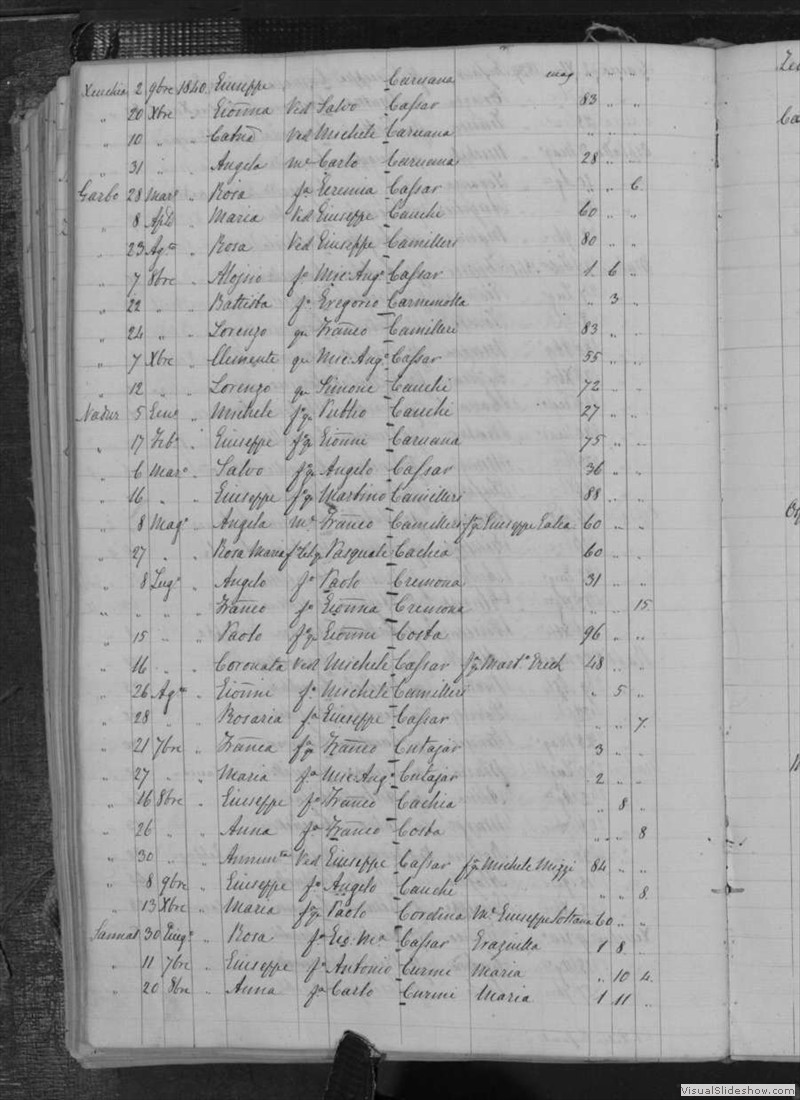 Xeuchia 2 9bre 1840 Giuseppe Caruana mag " " "
" 20 Xbre " Gionna Ved Salvo Cassar 83 " "
" 10 " " Catna Ved Michele Caruana " " "
" 31 " " Angela Me Carlo Caruana 28 " "
Garbo 28 Maro " Rosa fa Geremia Cassar " " 6
" 8 Aple " Maria Ved Giuseppe Cauchi 60 " "
" 23 Agto " Rosa Ved Giuseppe Camilleri 80 " "
" 7 8bre " Aloysio fo Mic Ango Cassar 1 6 "
" 22 " " Battista fo Gregorio " 3 "
" 24 " " Lorenzo qm Franco Camilleri 83 " "
" 7 Xbre " Clemente qm Mic Ango Cassar 55 " "
" 12 " " Lorenzo qm Simone Cauchi 72 " "
Nadur 5 " Michele Publio Cauchi 27 " "
" 17 Febo " Giuseppe Gionni Caruana 75 " "
" 6 Maro " Salvo Angelo Cassar 36 " "
" 16 " " Giuseppe Martino Camilleri 88 " "
" 8 Mago " Angela Me Franco Camilleri Giuseppe Galea 60 " "
" 27 " " Rosa Maria Pasquale Cachia 60 " "
" 8 Lugo " Angelo fo Paolo Cremona 31 " "
" " " " Franco fo Gionna Cremona " " 15
" 15 " " Paolo Gionni Costa 96 " "
" 16 " " Coronata Ved Michele Cassar 48 " "
" 26 Agto " Gionni fo Michele Camilleri " 5 "
" 28 " " Rosaria fa Giuseppe Cassar " " 7
" 21 7bre " Franca Franco Cutajar 3 " "
" 27 " " Maria fa Mic Ango Cutajar 2 " "
" 16 8bre " Giuseppe fo Franco Cachia " 8 "
" 26 " " Anna fa Franco Costa " " 8
" 30 " " Annunta Ved Giuseppe Cassar Michele Mizzi 84 " "
" 8 9bre " Giuseppe fo Angelo Cauchi " " 8
" 13 Xbre " Maria Paolo Cordina Me Giuseppe Soltana 60 " "
Sannat 30 " Rosa fa Gio Ma Cassar Graziulla 1 8 "
" 11 7bre " Giuseppe fo Antonio Curmi Maria " 10 4
" 20 8bre " Anna fa Carlo Curmi Maria 1 11 "
VisualSlideshow.com